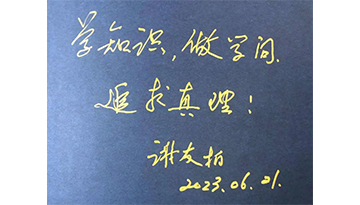 学知识,做学问
追求真理!
谢友柏
2023.06.01.